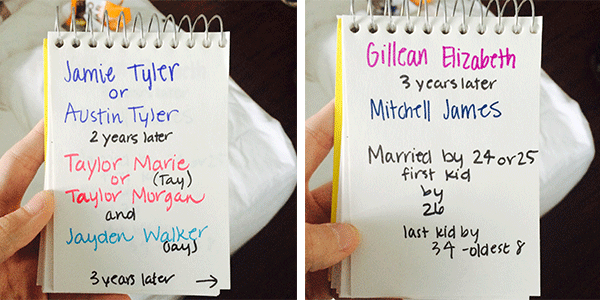 Jamie Tyler
or
Austin Tyler
2 years later
Taylor Marie
or (Tay)
Taylor Morgan
and
Jayden Walker
(Jay)
3 years later →
Gillean Elizabeth
3 years later
Mitchell James
Married by 24 or 25
first kid
by
26
last kid by
34 - oldest 8